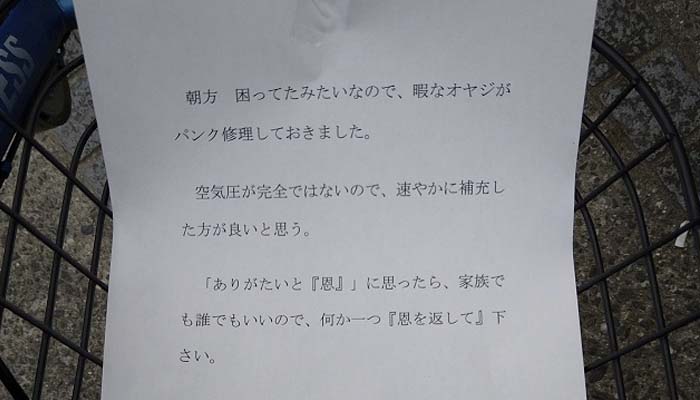 ESS
朝方　困ってたみたいなので、暇なオヤジが
パンク修理しておきました。
空気圧が完全ではないので、速やかに補充し
た方が良いと思う。
「ありがたいと『恩』」に思ったら、家族で
も誰でもいいので、何か一つ『恩を返して』下
さい。